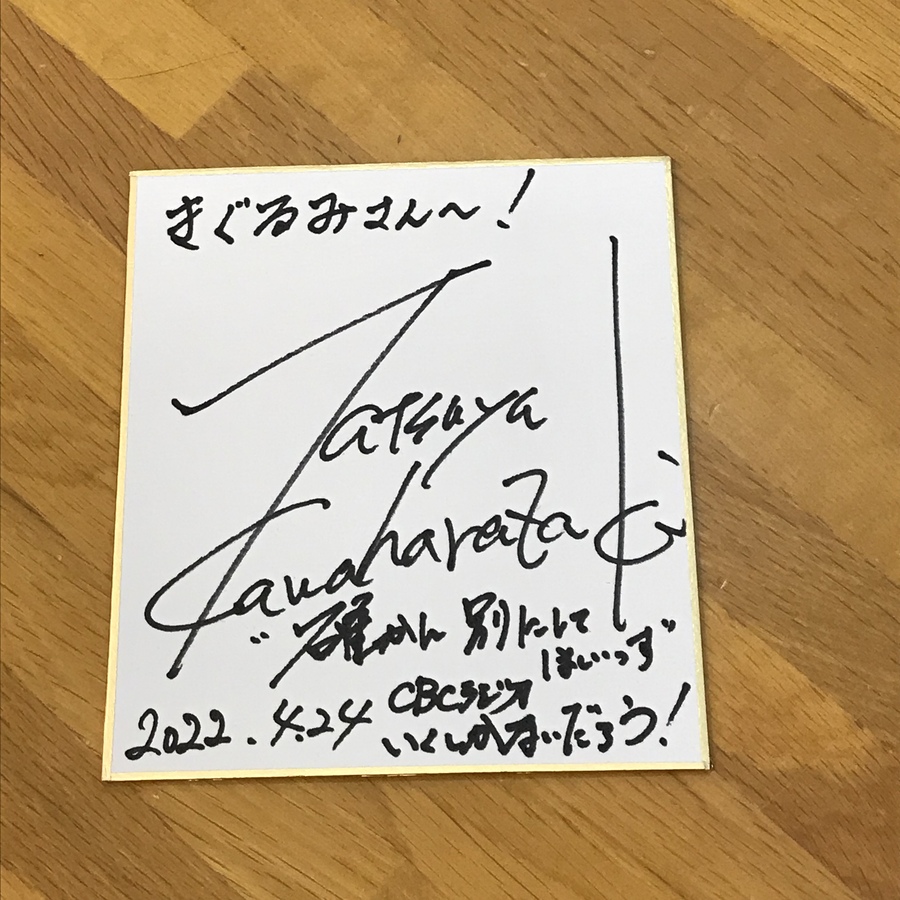 きぐるみさん〜!
Tatsuya
Kawaharazaki
"確かに 別にして
ほいっず"
2022.4.24 CBCラジオ
いくしかないだろう!